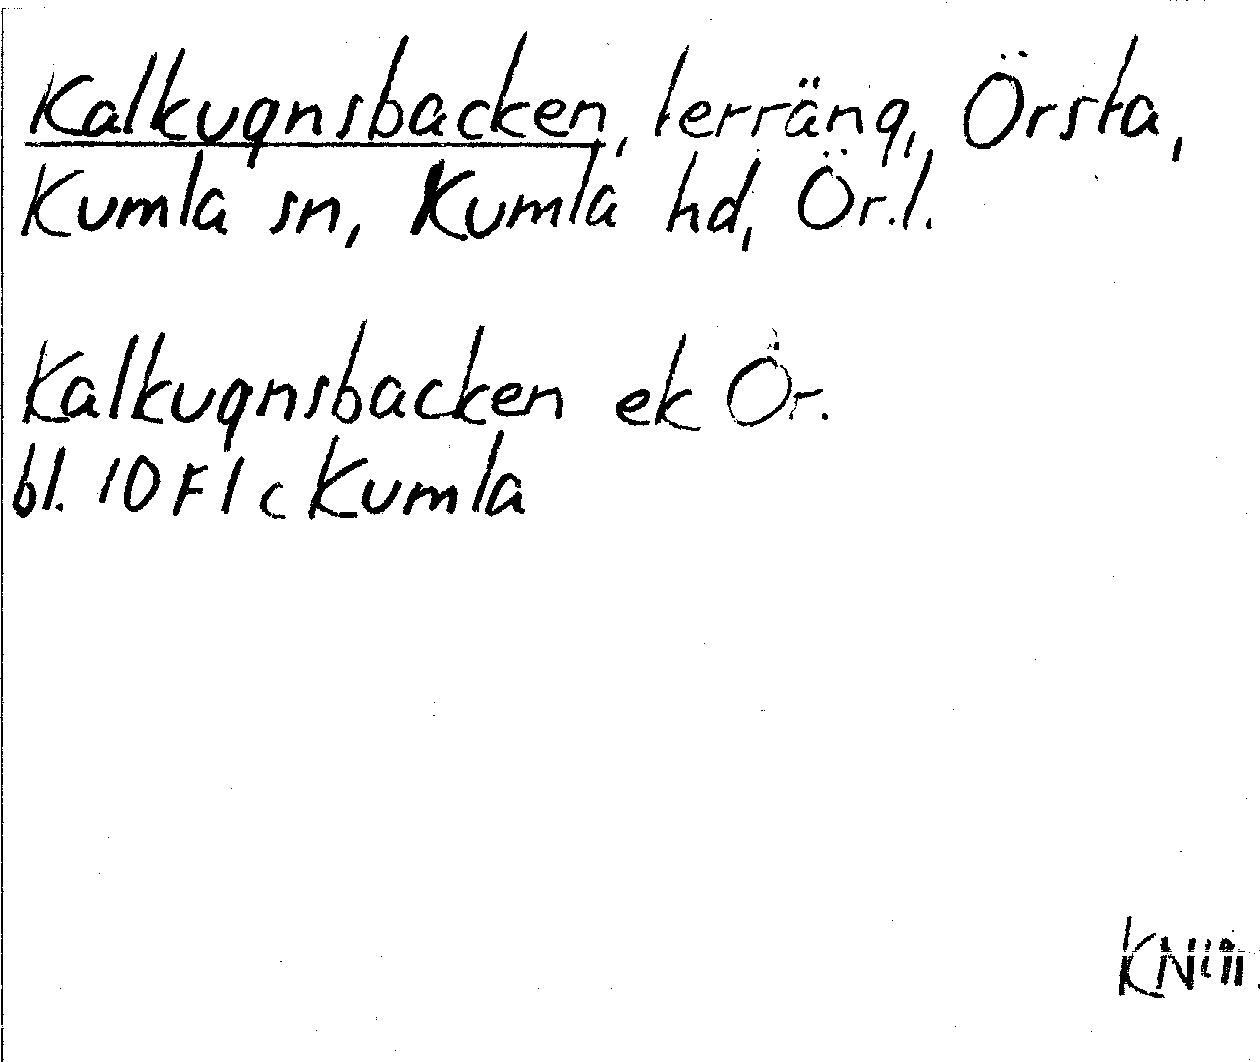 Kalkugnsbacken, terräng, Örsta,
Kumla sn, Kumla hd, Ör.l.
Kalkugnsbacken ek Ör.
bl. 10 F 1 c Kumla